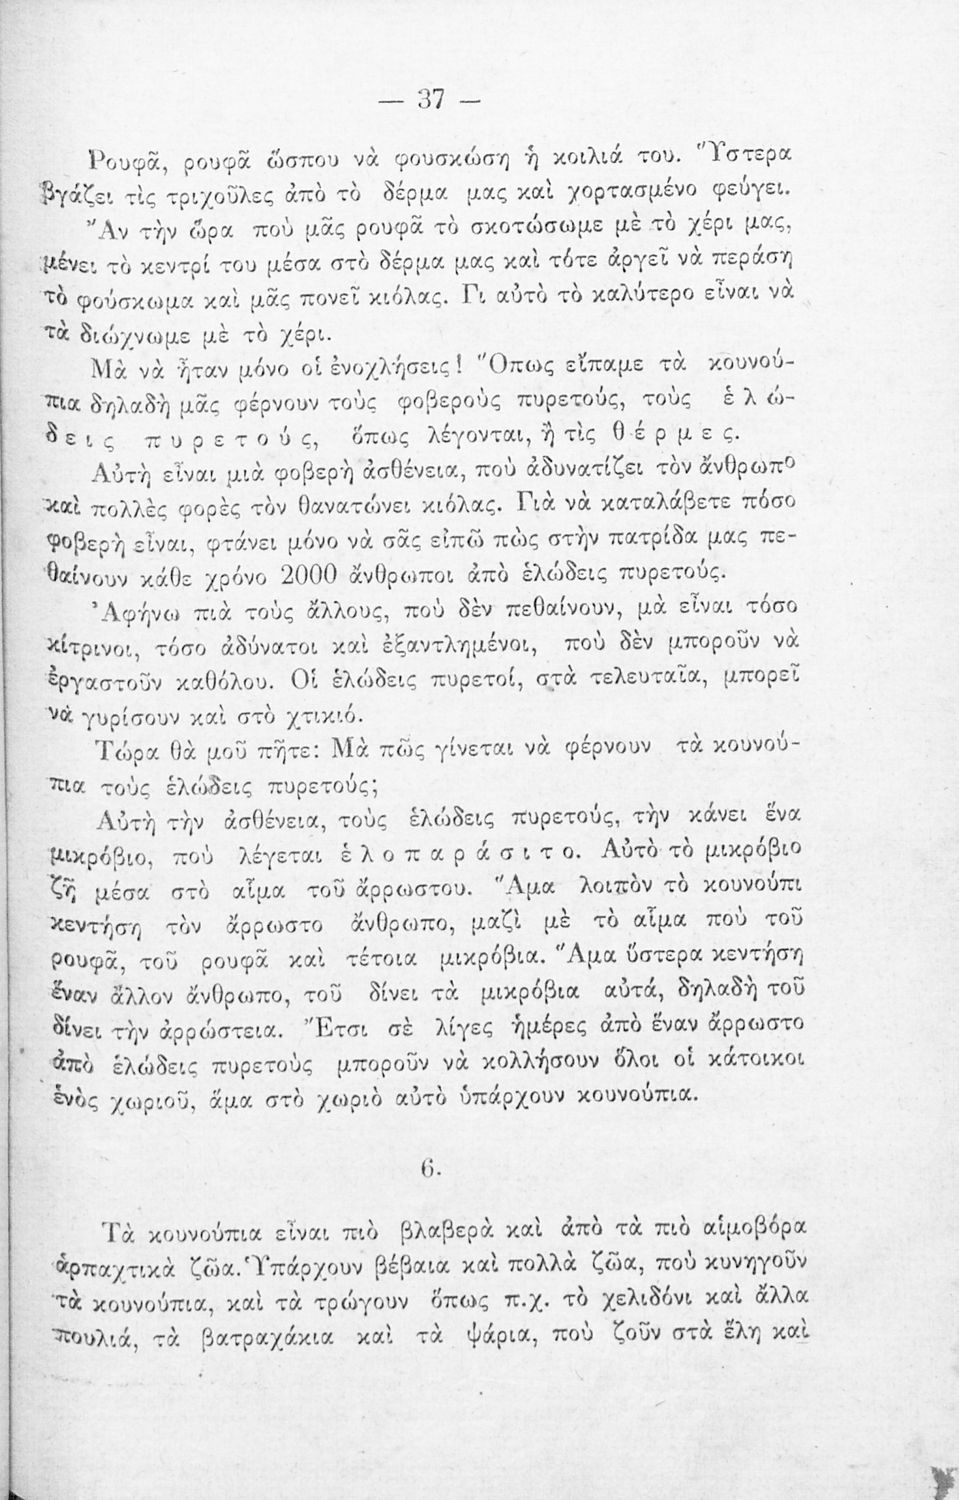 — 37 —
Ρουφᾶ, ρουφᾶ ὥσπου νὰ φουσκώσῃ ἡ κοιλιά του. Ὕστερα
βγάζει τὶς τριχοῦλες ἀπὸ τὸ δέρμα μας καὶ χορτασμένο φεύγει.
Ἂν τὴν ὥρα ποὺ μᾶς ρουφᾶ τὸ σκοτώσωμε μὲ τὸ χέρι μας,
μένει τὸ κεντρί του μέσα στὸ δέρμα μας καὶ τότε ἀργεῖ νὰ περάσῃ
τὸ φούσκωμα καὶ μᾶς πονεῖ κιόλας. Γι αὐτὸ τὸ καλύτερο εἶναι νὰ
τὰ διώχνωμε μὲ τὸ χέρι.
Μὰ νὰ ἦταν μόνο οἱ ἐνοχλήσεις! Ὅπως εἴπαμε τὰ κουνού-
πια δηλαδὴ μᾶς φέρνουν τοὺς φοβεροὺς πυρετούς, τοὺς ἑ λ ώ-
δ ε ι ς π υ ρ ε τ ο ύ ς, ὅπως λέγονται, ἢ τὶς θ έ ρ μ ε ς.
Αὐτὴ εἶναι μιὰ φοβερὴ ἀσθένεια, ποὺ ἀδυνατίζει τὸν ἄνθρωπο
καὶ πολλὲς φορὲς τὸν θανατώνει κιόλας. Γιὰ νὰ καταλάβετε πόσο
φοβερὴ εἶναι, φτάνει μόνο νὰ σᾶς εἰπῶ πὼς στὴν πατρίδα μας πε-
θαίνουν κάθε χρόνο 2000 ἄνθρωποι ἀπὸ ἑλώδεις πυρετούς.
Ἀφήνω πιὰ τοὺς ἄλλους, ποὺ δὲν πεθαίνουν, μὰ εἶναι τόσο
κίτρινοι, τόσο ἀδύνατοι καὶ ἐξαντλημένοι, ποὺ δὲν μποροῦν νὰ
ἐργαστοῦν καθόλου. Οἱ ἑλώδεις πυρετοί, στὰ τελευταῖα, μπορεῖ
νὰ γυρίσουν καὶ στὸ χτικιό.
Τώρα θὰ μοῦ πῆτε: Μὰ πῶς γίνεται νὰ φέρνουν τὰ κουνού-
πια τοὺς ἑλώδεις πυρετούς;
Αὐτὴ τὴν ἀσθένεια, τοὺς ἑλώδεις πυρετούς, τὴν κάνει ἕνα
μικρόβιο, ποὺ λέγεται ἑ λ ο π α ρ ά σ ι τ ο. Αὐτὸ τὸ μικρόβιο
ζῇ μέσα στὸ αἷμα τοῦ ἄρρωστου. Ἅμα λοιπὸν τὸ κουνούπι
κεντήσῃ τὸν ἄρρωστο ἄνθρωπο, μαζὶ μὲ τὸ αἷμα ποὺ τοῦ
ρουφᾶ, τοῦ ρουφᾶ καὶ τέτοια μικρόβια. Ἅμα ὕστερα κεντήσῃ
ἕναν ἄλλον ἄνθρωπο, τοῦ δίνει τὰ μικρόβια αὐτά, δηλαδὴ τοῦ
δίνει τὴν ἀρρώστεια. Ἔτσι σὲ λίγες ἡμέρες ἀπὸ ἕναν ἄρρωστο
ἀπὸ ἑλώδεις πυρετοὺς μποροῦν νὰ κολλήσουν ὅλοι οἱ κάτοικοι
ἑνὸς χωριοῦ, ἅμα στὸ χωριὸ αὐτὸ ὑπάρχουν κουνούπια.
6.
Τὰ κουνούπια εἶναι πιὸ βλαβερὰ καὶ ἀπὸ τὰ πιὸ αἱμοβόρα
ἁρπαχτικὰ ζῶα. Ὑπάρχουν βέβαια καὶ πολλὰ ζῶα, ποὺ κυνηγοῦν
τὰ κουνούπια, καὶ τὰ τρώγουν ὅπως π.χ. τὸ χελιδόνι καὶ ἄλλα
πουλιά, τὰ βατραχάκια καὶ τὰ ψάρια, ποὺ ζοῦν στὰ ἕλη καὶ